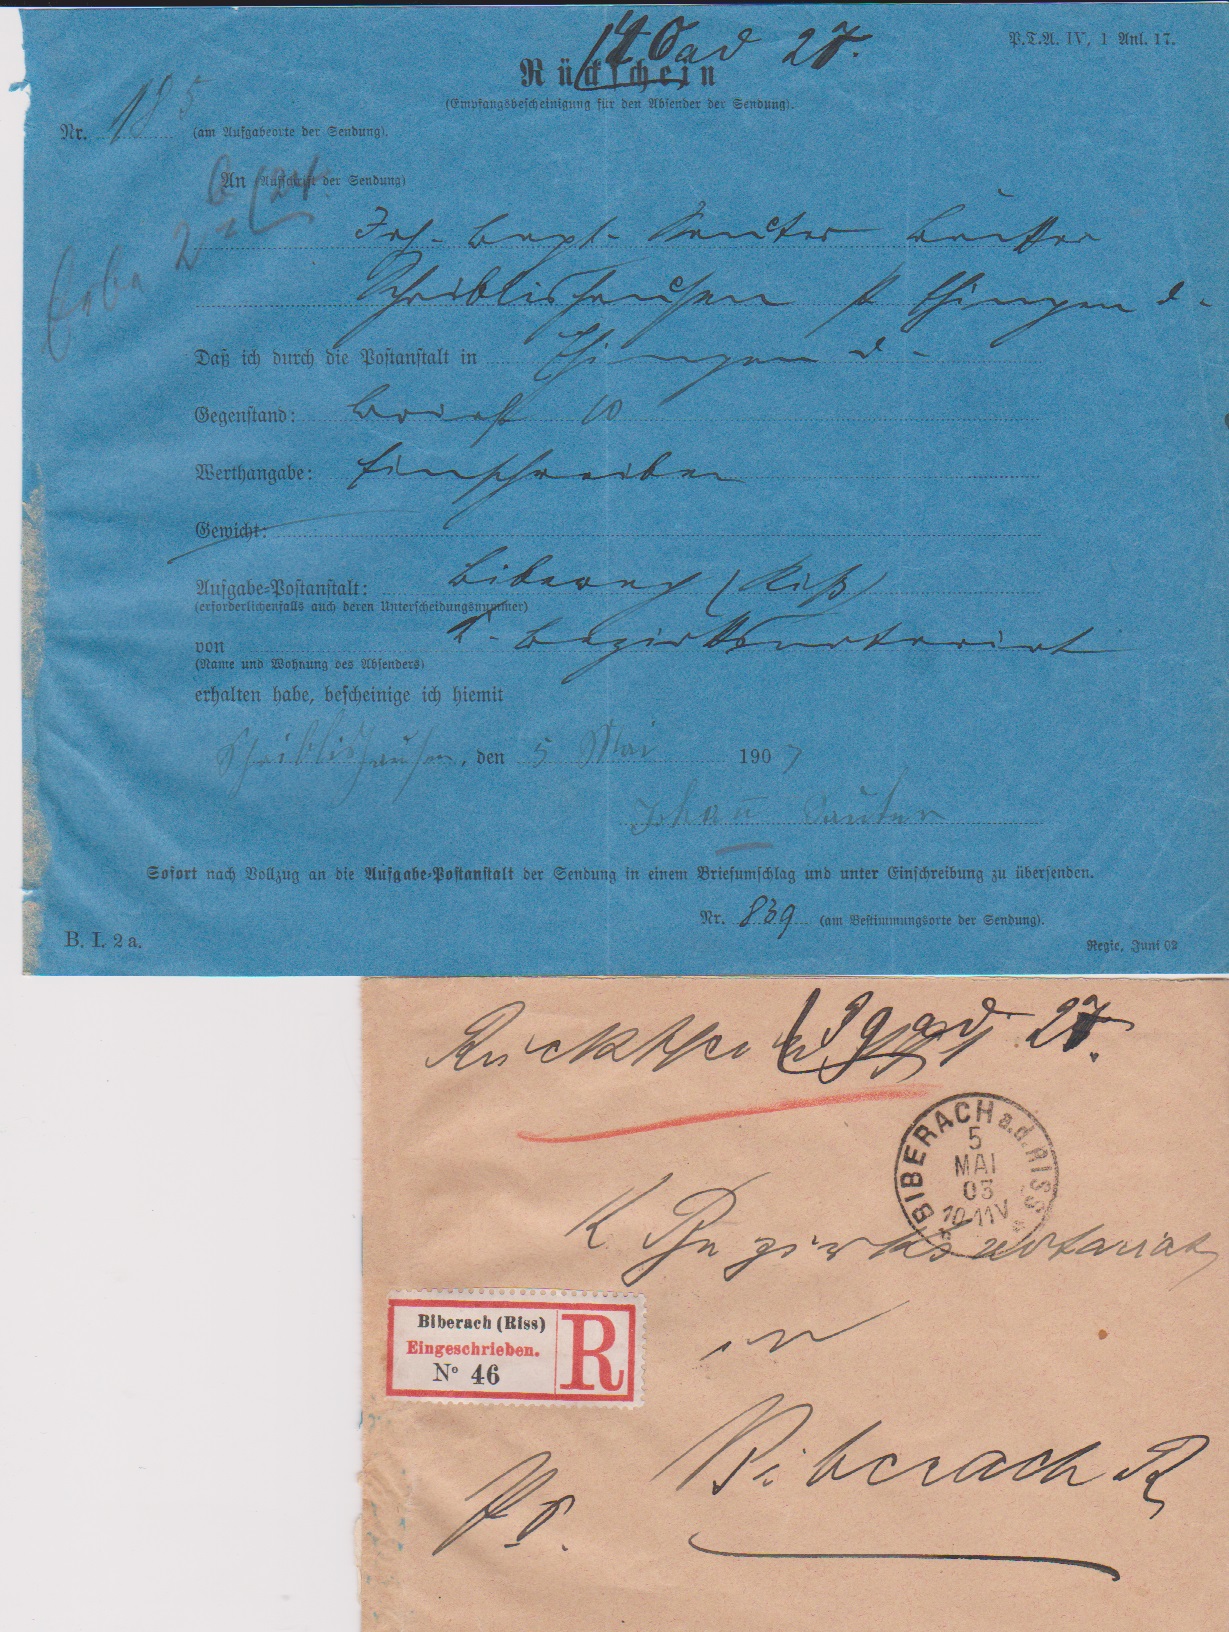 140 ad 27.
P.T.A. IV, 1 Anl. 17.
Rückschein
(Empfangsbescheinigung für den Absender der Sendung).
Nr. 185 (am Aufgabeorte der Sendung).
An (Aufschrift der Sendung)
Joh. Bapt. Sauter
Schaiblishausen Ehingen d.
Daß ich durch die Postanstalt in Ehingen d.
Gegenstand: Brief 10
Werthangabe: Einschreiben
Gewicht:
Aufgabe-Postanstalt: Biberach (Riß)
(erforderlichenfalls auch deren Unterscheidungsnummer)
von K. Bezirksnotariat
(Name und Wohnung des Absenders)
erhalten habe, bescheinige ich hiemit
Schaiblishausen, den 5 Mai 190
Sauter
Sofort nach Vollzug an die Aufgabe-Postanstalt der Sendung in einem Briefumschlag und unter Einschreibung zu übersenden.
Nr. 839 (am Bestimmungsorte der Sendung).
B. I. 2 a.
Regie, Juni 02
Rückschein 139 ad 27.
BIBERACH a.d. RISS
5
MAI
03
10-11V
K Bezirksnotariat
in
Biberach R
Biberach (Riss)
Eingeschrieben.
No 46
R